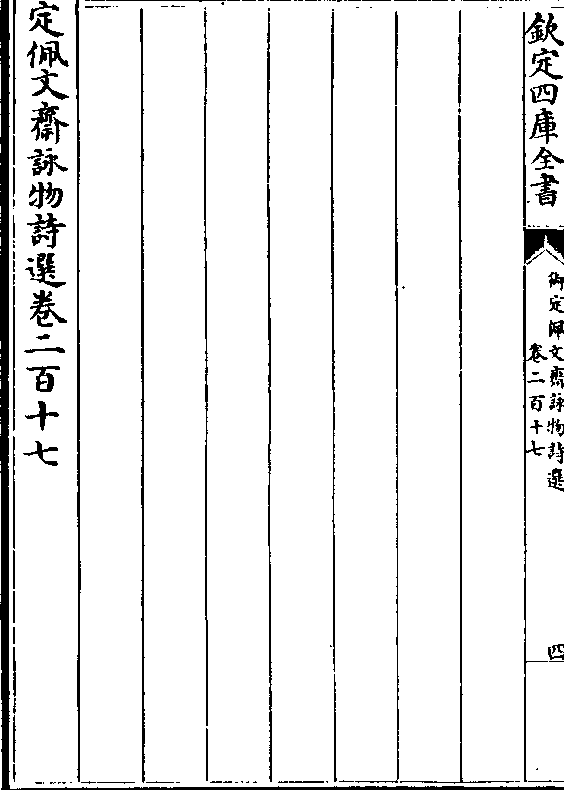 欽定四庫全書
御定佩文齋詠物詩選
卷二百十七
四
定佩文齋詠物詩選卷二百十七